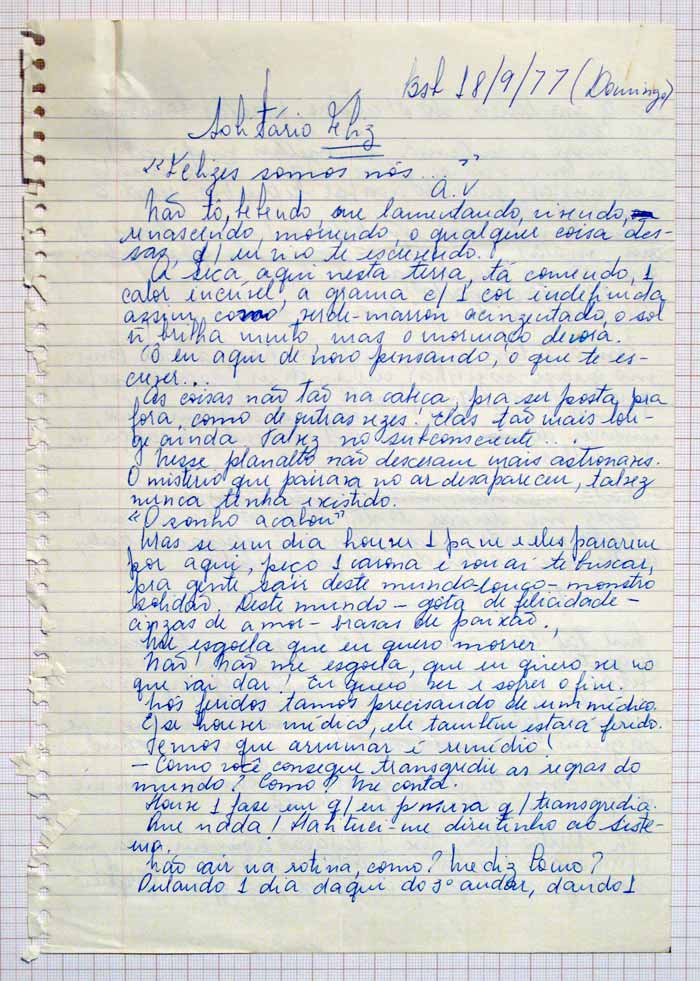 Bsb 18/9/77 (Domingo)
Solitário Feliz
"Felizes somos nós..."
A.V
Não tô, bebendo, me lamentando, vivendo,
renascendo, morrendo, o qualquer coisa des-
sas, q/ eu vivo te escrevendo.
A seca aqui nesta terra, tá comendo, 1
calor incrível, a grama c/ 1 cor indefinida
assim como verde-marron acinzentado, o sol
ñ brilha muito, mas o mormaço devora.
Tô eu aqui de novo pensando, o que te es-
crever...
As coisas não tão na cabeça, pra ser posta pra
fora, como de outras vezes! Elas tão mais lon-
ge ainda, talvez no subconsciente...
Nesse planalto não desceram mais astronaves.
O mistério que pairava no ar desapareceu, talvez
nunca tenha existido.
"O sonho acabou"
Mas se um dia houver 1 pane e eles pararem
por aqui, peço 1 carona e vou aí te buscar,
pra gente sair deste mundo-louco-monstro
solidão. Deste mundo - gota de felicidade -
cinzas de amor - brasas de paixão.
Me esgoela que eu quero morrer.
Não! Não me esgoela, que eu quero ver no
que vai dar! Eu quero ver e sofrer o fim.
Nós feridos tamos precisando de um médico.
E se houver médico, ele também estará ferido.
Temos que arrumar é remédio!
- Como você consegue transgredir as regras do
mundo? Como? Me conta.
Houve 1 fase em q/ eu pensava q/ transgredia.
Que nada! Habituei-me direitinho ao siste-
ma.
Não cair na rotina, como? Me diz Como?
Pulando 1 dia daqui do 3º andar, dando 1